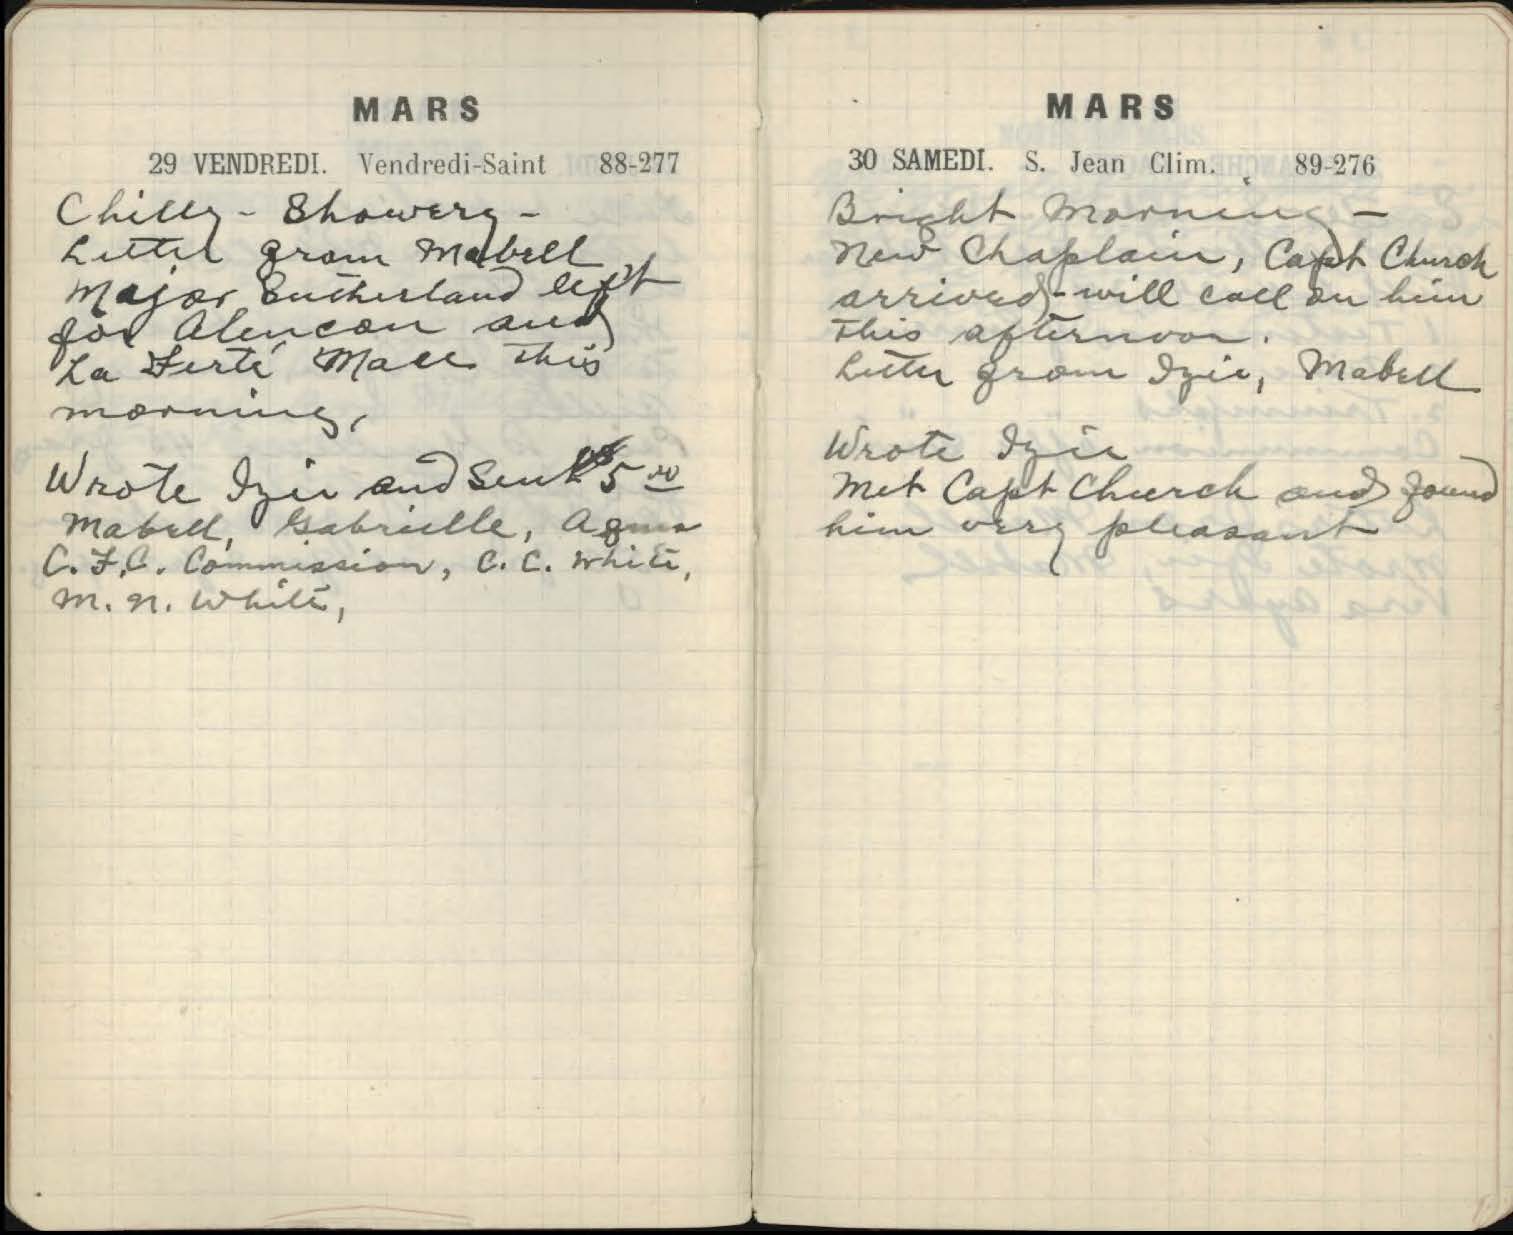 MARS
29 VENDREDI. Vendredi-Saint 88-277
Chilly - Showery -
Letter from Mabell
Major Sutherland left
for Alencon and
La Ferté Mace this
morning,
Wrote Izie and sent $5.00
Mabell, Gabrielle, Agnes
C.F.C. Commission, C.C. White,
M. N. White,
MARS
30 SAMEDI. S. Jean Clim. 89-276
Bright Morning -
New Chaplain, Capt Church
arrived - will call on him
this afternoon.
Letter from Izie, Mabell
Wrote Izie
Met Capt Church and found
him very pleasant